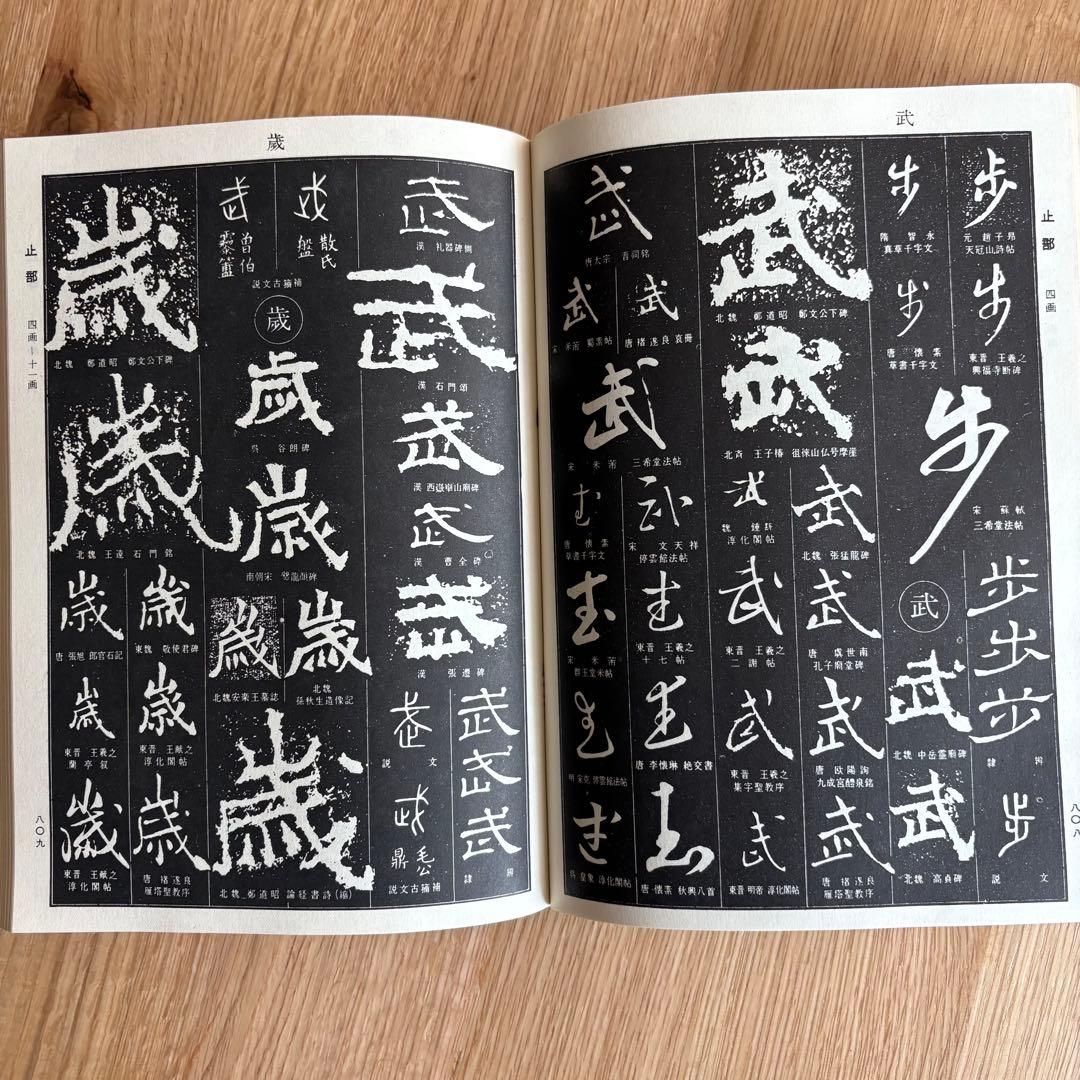 武
止部
四画
八〇八
步
元 趙子昂
天冠山詩帖
步
東晋 王羲之
興福寺断碑
步
隋 智永
真草千字文
步
唐 懐素
草書千字文
步
宋 蘇軾
三希堂法帖
步
步
步
隷辨
步
説文
武
武
北魏 中岳霊廟碑
武
北魏 高貞碑
武
北魏 鄭道昭 鄭文公下碑
武
北斉 王子椿 徂徠山仏号摩崖
武
北魏 張猛龍碑
武
唐 虞世南
孔子廟堂碑
武
唐 欧陽詢
九成宮醴泉銘
武
唐 褚遂良
雁塔聖教序
武
魏 鍾繇
淳化閣帖
武
東晋 王羲之
二謝帖
武
東晋 王羲之
集字聖教序
武
東晋 明帝 淳化閣帖
武
唐太宗 晋祠銘
武
唐 褚遂良 哀冊
武
宋 米芾 蜀素帖
武
宋 米芾 三希堂法帖
武
宋 文天祥
停雲館法帖
武
東晋 王羲之
十七帖
武
唐 李懐琳 絶交書
武
唐 懐素 秋興八首
武
唐 懐素
草書千字文
武
宋 米芾
群玉堂米帖
武
明 宋克 停雲館法帖
武
呉 皇象 淳化閣帖
歲
止部
四画—十一画
八〇九
武
漢 礼器碑側
武
漢 石門頌
武
漢 西嶽華山廟碑
武
漢 曹全碑
武
漢 張遷碑
武
武
武
隷辨
武
説文
武
毛公
鼎
説文古籀補
武
散氏
盤
武
曾伯
霥簠
説文古籀補
歲
歲
呉 谷朗碑
歲
南朝宋 爨龍顔碑
歲
北魏
孫秋生造像記
歲
北魏安楽王墓誌
歲
北魏 鄭道昭 論経書詩(縮)
歲
北魏 鄭道昭 鄭文公下碑
歲
北魏 王遠 石門銘
歲
東魏 敬使君碑
歲
東晋 王献之
淳化閣帖
歲
唐 褚遂良
雁塔聖教序
歲
唐 張旭 郎官石記
歲
東晋 王羲之
蘭亭叙
歲
東晋 王献之
淳化閣帖